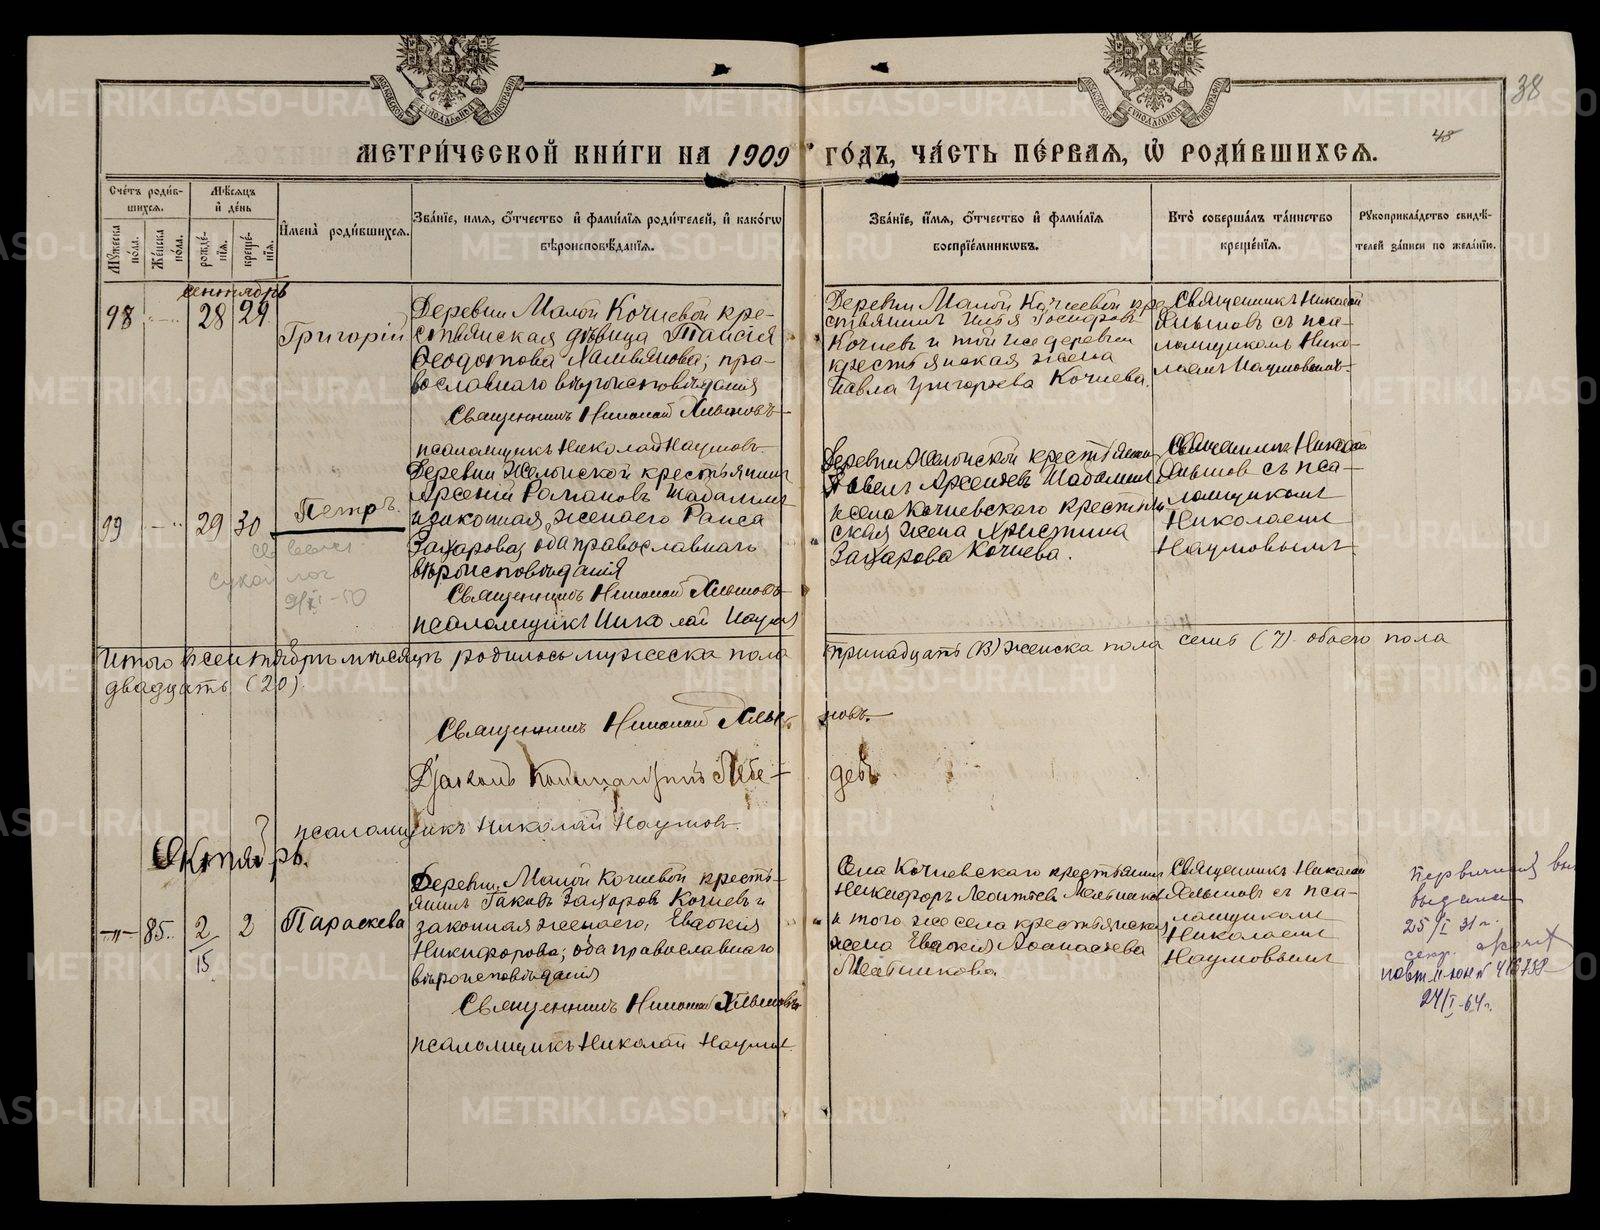 38
48
МЕТРИ́ЧЕСКОЙ КНИ́ГИ НА 1909 ГО́ДЪ, ЧА́СТЬ ПЕ́РВАЯ, Ѡ҆ РОДИ́ВШИХСЯ.
Сче́тъ роди́в-
шихся.
Мѣ́сяцъ
и҆ де́нь
Мꙋ́жеска по́ла.
Же́нска по́ла.
рожде́-
нїя.
креще́-
нїя.
И҆мена̀ роди́вшихся.
Зва́нїе, и҆́мя, ѻ҆́тчество и҆ фами́лїя роди́телей, и҆ како́гѡ
вѣроисповѣ́данїя.
Зва́нїе, и҆́мя, ѻ҆́тчество и҆ фами́лїя
воспрїе́мникѡвъ.
Кто̀ соверша́лъ та́инство
креще́нїя.
Рꙋкоприкла́дство свидѣ́-
телей за́писи по жела́нїю.
сентябрь
98
28 29
Григорій
Деревни Малой Кочневой кре-
стьянская дѣвица Таисія
Ѳеодотова; пра-
вославнаго вѣроисповѣданія
Священникъ Николай Хлыновъ
псаломщикъ Николай Наумовъ
Деревни Малой Кочневой кре-
стьянинъ Илья
Кочневъ и той же деревни
крестьянская жена
Павла Григорьева Кочнева.
Священникъ Николай
Хлыновъ съ пса-
ломщикомъ Нико-
лаемъ Наумовымъ
99
29 30
Петръ
сухой лог
Деревни крестьянинъ
Арсеній Романовъ
и законная жена его Раиса
Захарова, оба православнаго
вѣроисповѣданія
Священникъ Николай Хлыновъ
псаломщикъ Николай Наумов
Деревни крестьянинъ
Павелъ Арсеньевъ
и села Кочневскаго крестьян-
ская жена Христина
Захарова Кочнева.
Священникъ Николай
Хлынов съ пса-
ломщикомъ
Николаемъ
Наумовымъ
Итого въ сентябрѣ мѣсяцѣ родилось мужеска пола тринадцать (13) женска пола семь (7) обоего пола
двадцать (20).
Священникъ Николай Хлы- новъ.
Дьяконъ Лебе- девъ
псаломщикъ Николай Наумовъ.
Октябрь.
85.
2/15
2
Параскева
Деревни Малой Кочневой кресть-
янинъ Іаковъ Захаровъ Кочневъ и
законная жена его, Евдокія
Никифорова; оба православнаго
вѣроисповѣданія
Священникъ Николай Хлыновъ
псаломщикъ Николай Наумов
Села Кочневскаго крестьянинъ
Никифоръ Леонтьев Мельников
и того же села крестьянская
жена Евдокія
Мельникова
Священникъ Николай
Хлыновъ съ пса-
ломщикомъ
Николаемъ
Наумовымъ
выдана
25/I 31 г.
секр.
24/I-64 г.
METRIKI.GASO-URAL.RU